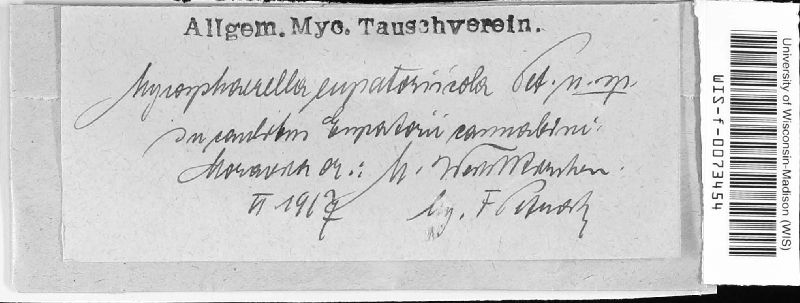 Allgem. Myc. Tauschverein.
Mycosphaerella eupatoriicola Pet. n. sp.
In caulibus Eupatorii cannabini.
Moravia or.: M. Weisskirchen.
VI 1917 lg. F. Petrak
University of Wisconsin-Madison (WIS)
WIS-f-0073454